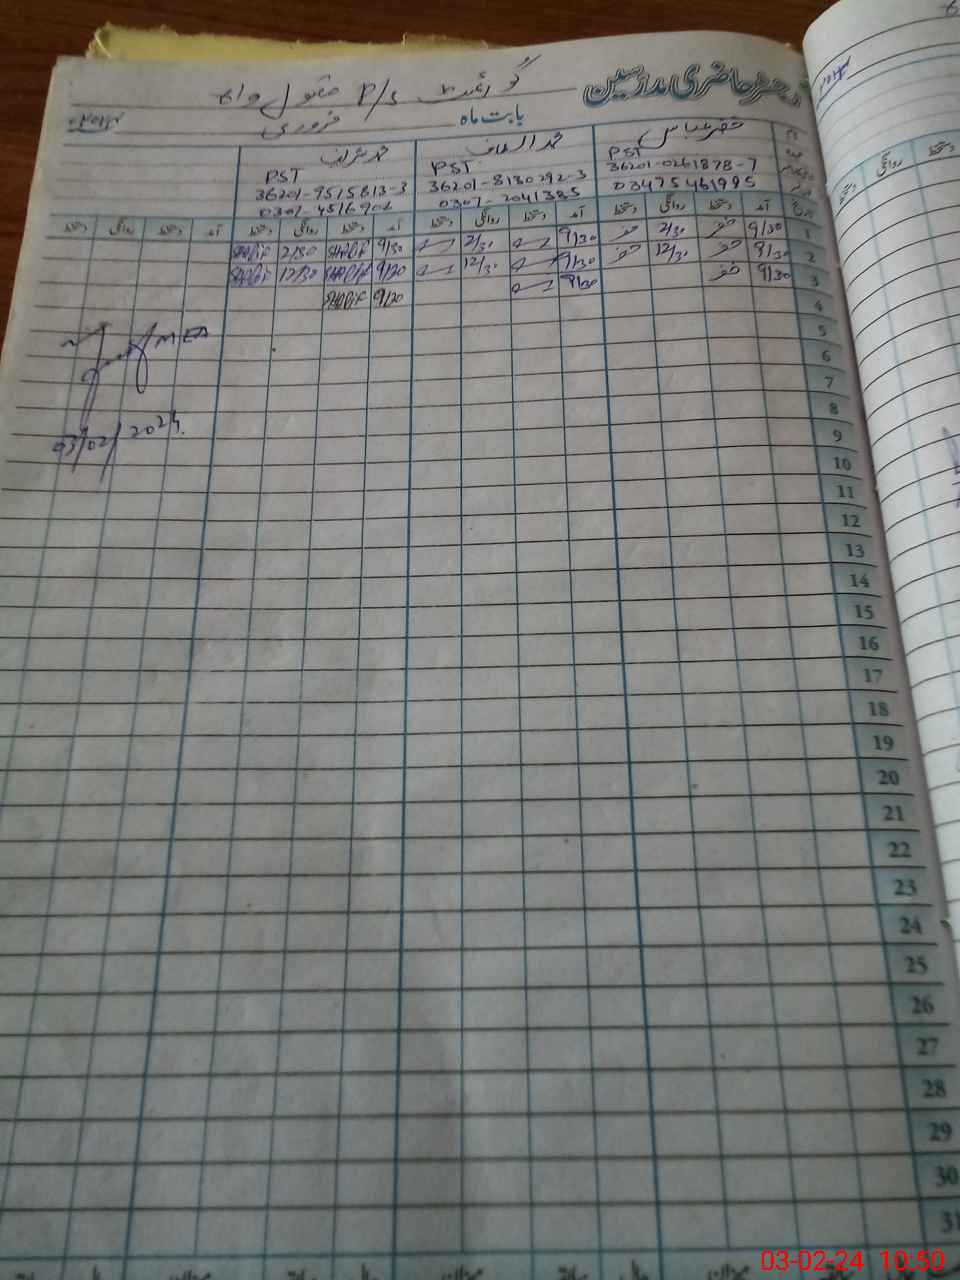 رجسٹر حاضری مدرسین گورنمنٹ P/S مقبول واہ
بابت ماہ فروری ۲۰۲۴ء
خضر عباس محمد الطاف محمد شریف
PST PST PST
36201-0261878-7 36201-8130292-3 36201-9515613-3
03475461995 0307-2041385 0301-4516906
تاریخ آمد دستخط روانگی دستخط آمد دستخط روانگی دستخط آمد دستخط روانگی دستخط آمد دستخط روانگی دستخط
1 9/30 خضر 2/30 خضر 9/30 2/30 9/30 Sharif 2/30 Sharif
2 9/30 خضر 12/30 خضر 9/30 12/30 9/20 Sharif 12/30 Sharif
3 9/30 خضر 9/30 9/20 Sharif
4
5
MEA
6
7
8
03/02/2024
9
10
11
12
13
14
15
16
17
18
19
20
21
22
23
24
25
26
27
28
29
30
31
03-02-24 10:50